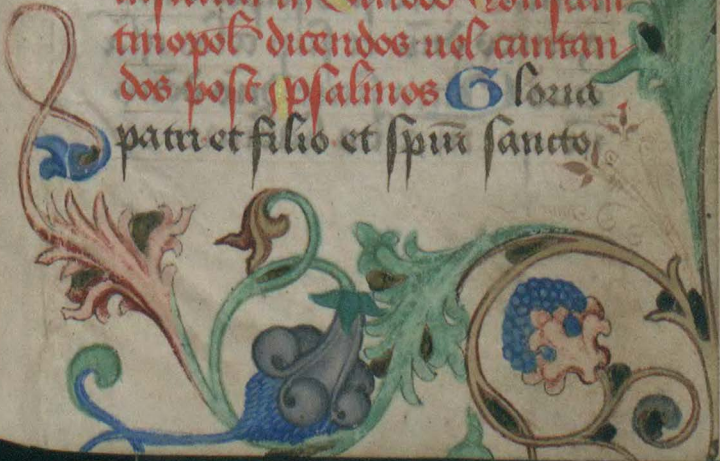 tinopol̄ dicendos uel cantan
dos post psalmos Gloria
patri et filio et spiū sancto